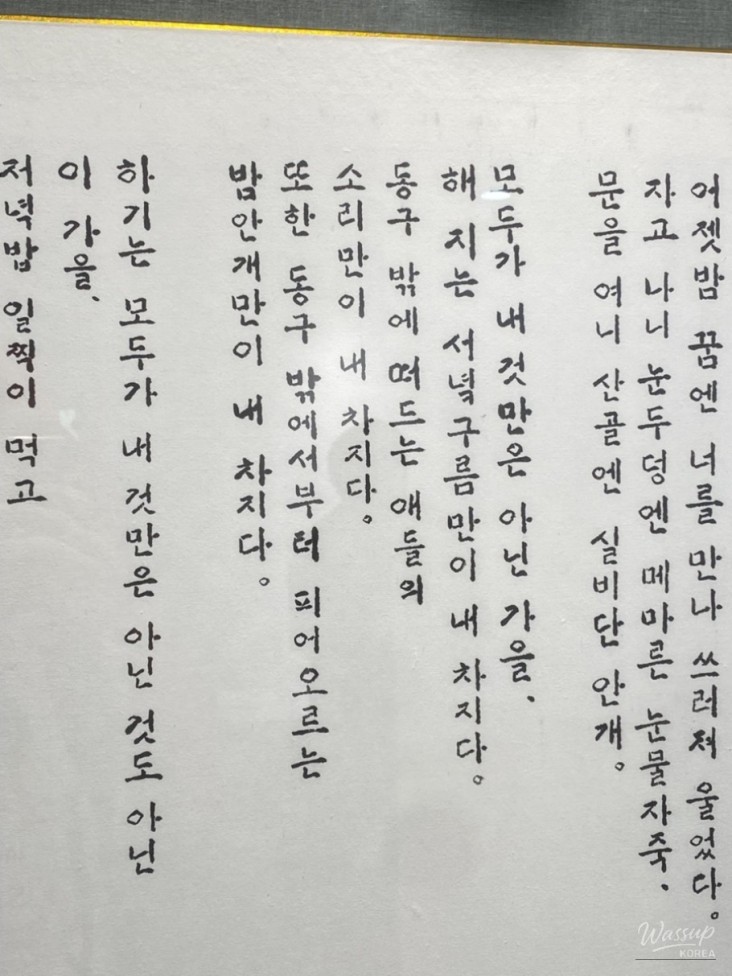 어젯밤 꿈엔 너를 만나 쓰러져 울었다。
자고 나니 눈두덩엔 메마른 눈물자죽.
문을 여니 산골엔 실비단 안개。
모두가 내 것만은 아닌 가을.
해 지는 서녘구름만이 내 차지다。
동구 밖에 떠드는 애들의
소리만이 내 차지다。
또한 동구 밖에서부터 피어오르는
밤안개만이 내 차지다。
하기는 모두가 내 것만은 아닌 것도 아닌
이 가을,
저녁밥 일찍이 먹고
Wassup
KOREA